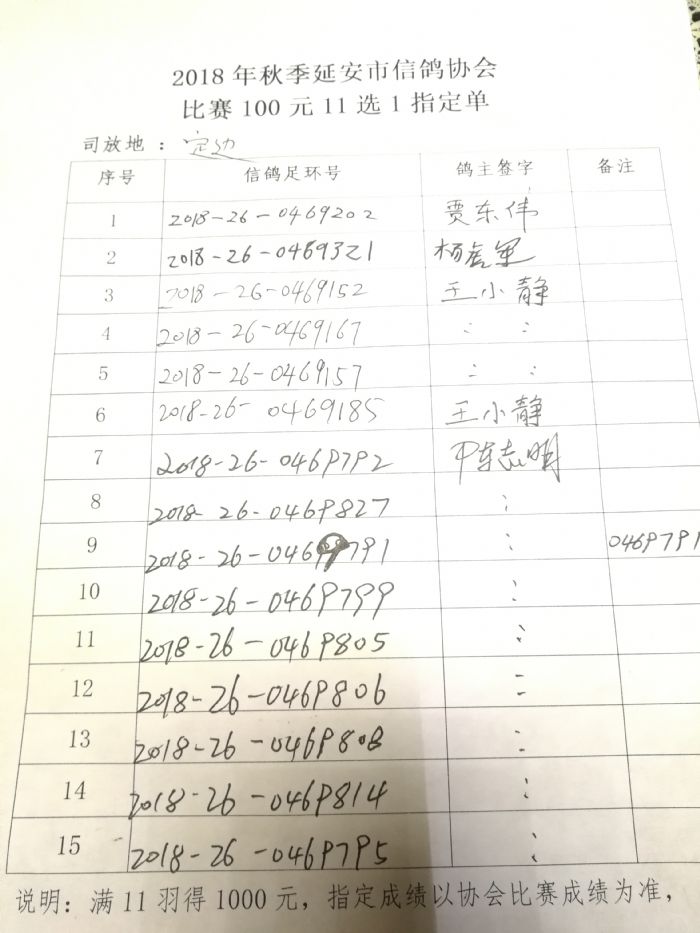 2018年秋季延安市信鸽协会
比赛100元11选1指定单
司放地：定边
序号 信鸽足环号 鸽主签字 备注
1 2018-26-0469202 贾东伟
2 2018-26-0469321 杨军
3 2018-26-0469152 王小静
4 2018-26-0469167 〃
5 2018-26-0469157 〃
6 2018-26-0469185 王小静
7 2018-26-0469792 志明
8 2018-26-0469827 〃
9 2018-26-0469791 〃 0469791
10 2018-26-0469799 〃
11 2018-26-0469805 〃
12 2018-26-0469806 〃
13 2018-26-0469808 〃
14 2018-26-0469814 〃
15 2018-26-0469795 〃
说明：满11羽得1000元，指定成绩以协会比赛成绩为准，